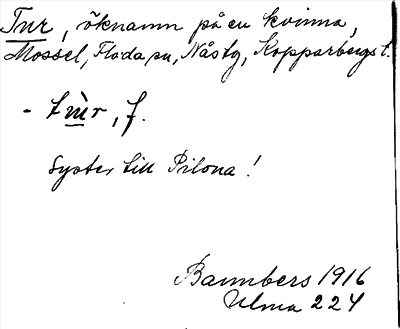 Tur, öknamn på en kvinna,
Mossel, Floda sn, Nåsbg, Kopparbergs l.
- tùr, f.
Syster till Pilona!
Bannbers 1916
Ulma 224